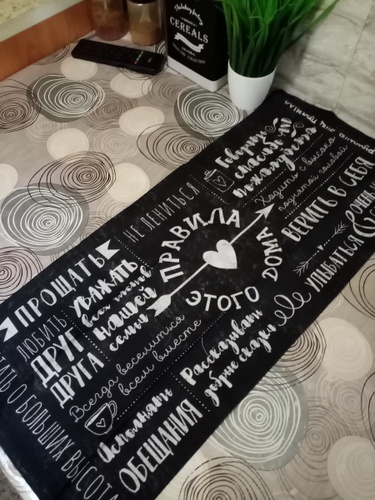 CEREALS
ПРОЩАТЬ
ЛЮБИТЬ
ДРУГ
ДРУГА
УВАЖАТЬ
НАШЕЙ
семьи
НЕ ЛЕНИТЬСЯ
ПРАВИЛА
ЭТОГО
ДОМА
Говорить
спасибо
пожалуйста
Ходить с высоко
поднятой головой
ВЕРИТЬ В СЕБЯ
УЛЫБАТЬСЯ
Всегда веселиться
всем вместе
Рассказывать
добрые сказки
Исполнять
ОБЕЩАНИЯ
О БОЛЬШИХ ВЫСОТАХ